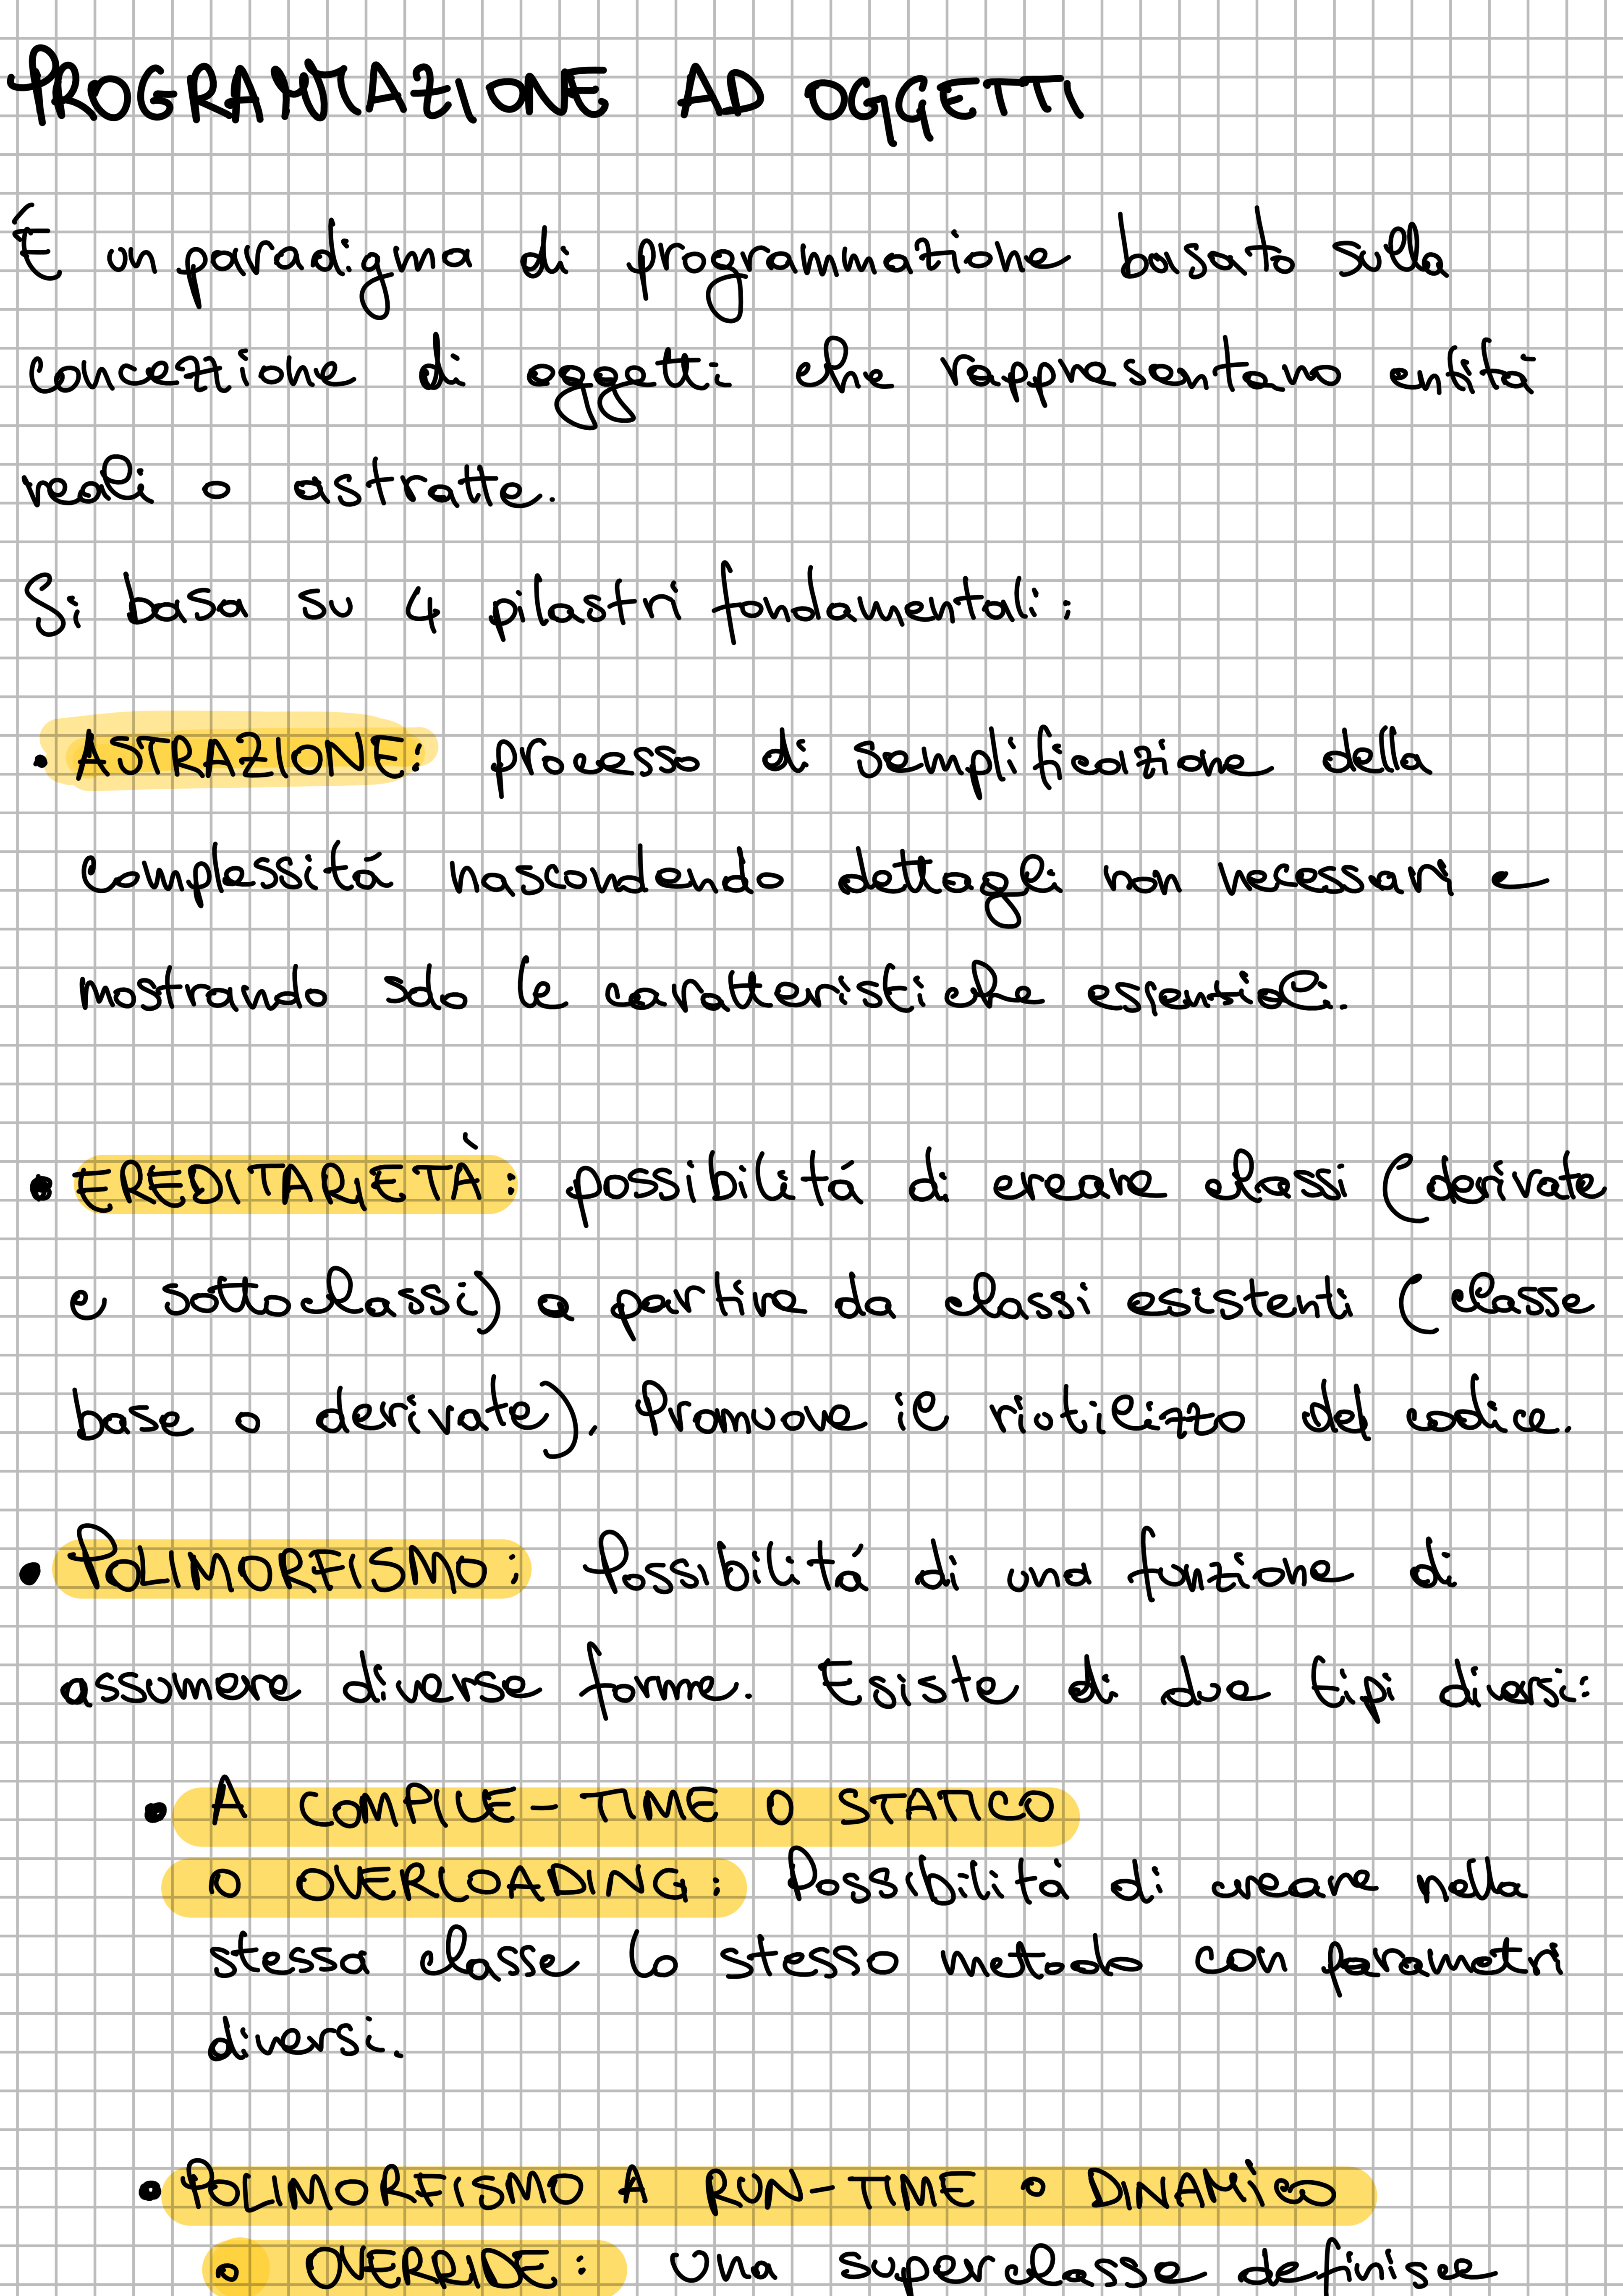 PROGRAMMAZIONE AD OGGETTI
É un paradigma di programmazione basato sulla
concezione di oggetti che rappresentano entitá
reali o astratte.
Si basa su 4 pilastri fondamentali:
• ASTRAZIONE: processo di semplificazione della
complessitá nascondendo dettagli non necessari e
mostrando solo le caratteristiche essenziali.
• EREDITARIETÀ: possibilitá di creare classi (derivate
e sottoclassi) a partire da classi esistenti (classe
base o derivate). Promuove il riutilizzo del codice.
• POLIMORFISMO: Possibilitá di una funzione di
assumere diverse forme. Esiste di due tipi diversi:
• A COMPILE-TIME O STATICO
O OVERLOADING: Possibilitá di creare nella
stessa classe lo stesso metodo con parametri
diversi.
• POLIMORFISMO A RUN-TIME O DINAMICO
O OVERRIDE: Una superclasse definisce